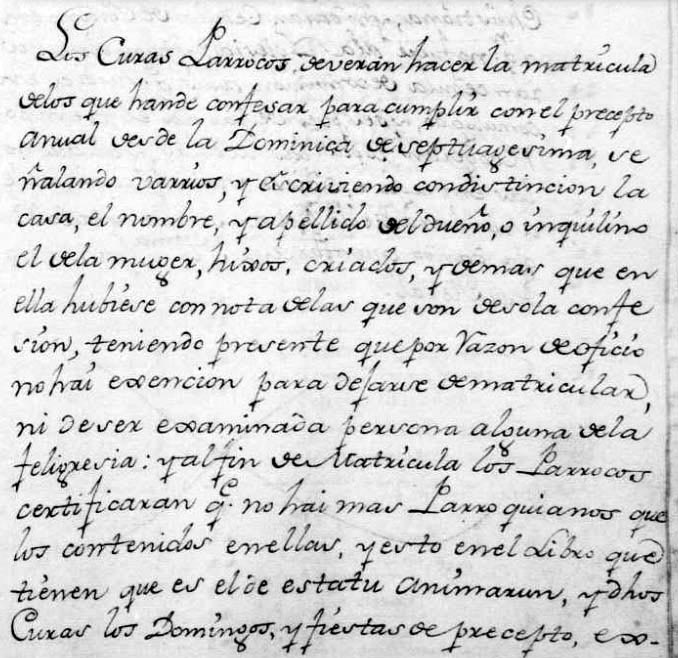 Los Curas Parrocos deveran hacer la matricula
delos que hande confesar para cumplir con el precepto
anual desde la Dominica de septuagesima, se
ñalando varrios, y escriviendo condistincion la
casa, el nombre, y apellido del dueño, o inquilino
el dela muger, hixos, criados, y demas que en
ella hubiese con nota delas que son desola confe
sion, teniendo presente que por razon de oficio
no hai exencion para dejarse dematricular,
ni de ser examinada persona alguna dela
feligresia: y al fin de Matricula los Parrocos
certificaran q.e no hai mas Parroquianos que
los contenidos enellas, y esto enel Libro que
tienen que es el de estatu animarun, y dhos
Curas los Domingos, y fiestas de precepto, ex-